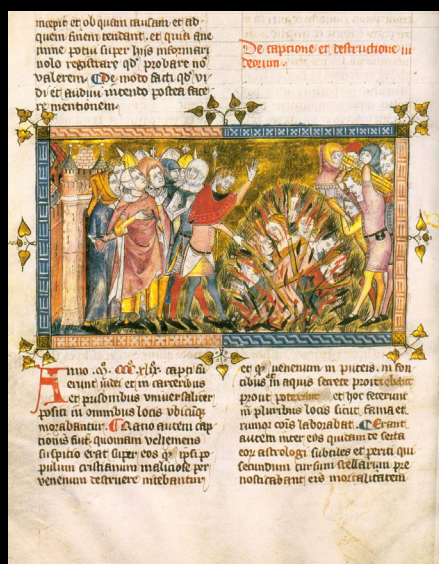 incepit et ob quam causam et ad
quem finem tendant. et quia que
mine potui super hijs informari
nolo registrare qd' probare nō
valerem. De modo facti qd' vi
di et audiui intendo postea face
re mentionem.
De captione et destructione iu
deorum.
Anno .m. ccc. xlix. capti fu
erunt iudei et in carceribus
et prisonibus vniuersaliter
positi in omnibus locis vbicūq;
morabantur. Ratio autem cap
tionis sue quoniam vehemens
suspicio erat super eos q' ipsi po
pulum cristianum maliciose per
venenum destruere nitebantur
et q' venenum in puteis. in fon
tibus et in aquis secrete proitiebant
prout poterant et hoc fecerunt
in pluribus locis sicut fama et
rumor cōis laborabat. Erant
autem inter eos quidam de secta
eor astrologi subtiles et periti qui
secundum cursum stellarum pre
nosticabant eis mortalitatem